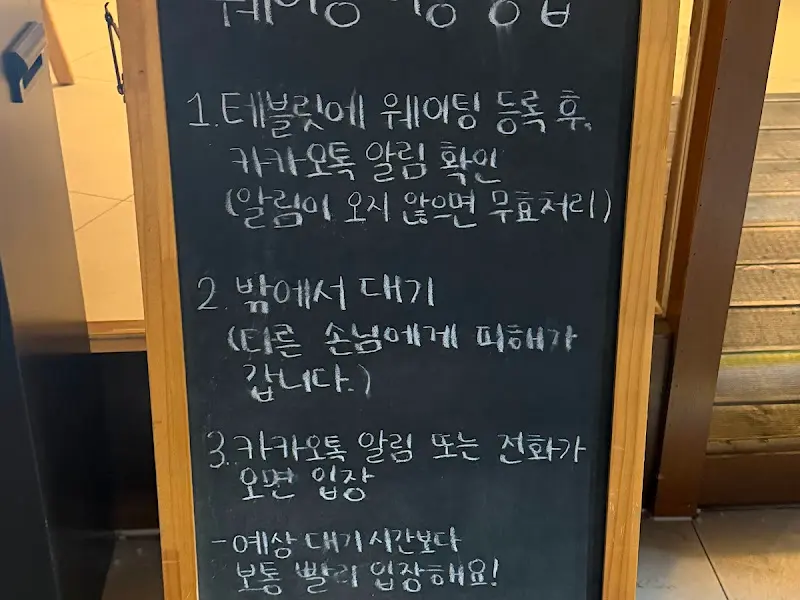 웨이팅
1. 테블릿에 웨이팅 등록 후,
카카오톡 알림 확인
(알림이 오지 않으면 무효처리)
2. 밖에서 대기
(다른 손님에게 피해가
갑니다.)
3. 카카오톡 알림 또는 전화가
오면 입장
- 예상 대기 시간보다
보통 빨리 입장해요!